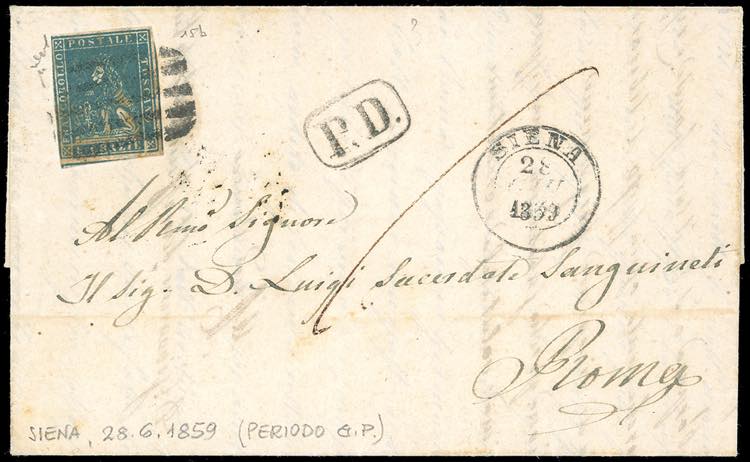 15b
?
FRANCOBOLLO
POSTALE
TOSCANO
6 CRAZIE
P.D.
SIENA
28
GIU
1859
Al Rmo Signore
Il Sig. D. Luigi Sacerdote Sanguineti
Roma
SIENA, 28.6.1859 (PERIODO G.P.)